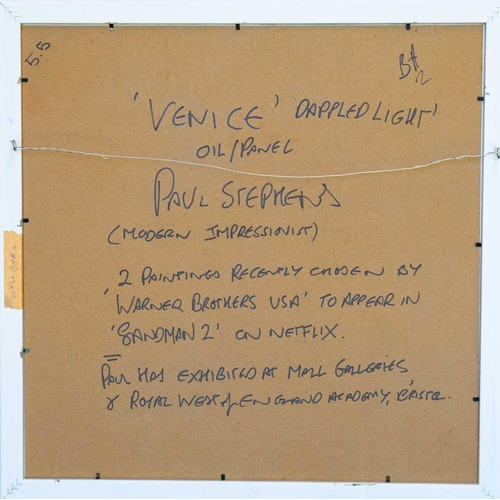 5.5
BA2
'VENICE' DAPPLED LIGHT'
OIL/PANEL
PAUL STEPHENS
(MODERN IMPRESSIONIST)
'2 PAINTINGS RECENTLY CHOSEN BY
'WARNER BROTHERS USA' TO APPEAR IN
'SANDMAN 2' ON NETFLIX.
PAUL HAS EXHIBITED AT MALL GALLERIES
& ROYAL WEST of ENGLAND ACADEMY, BRISTOL.